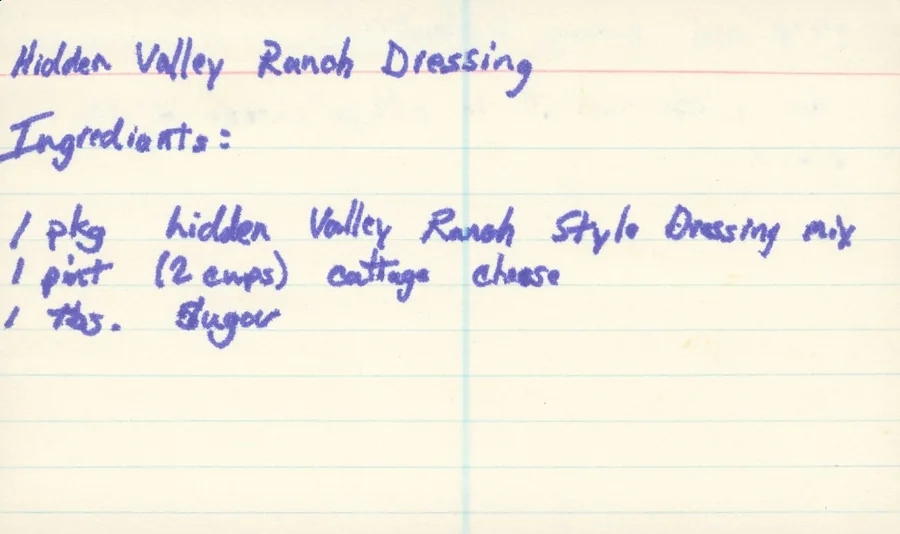 Hidden Valley Ranch Dressing
Ingrediants:
1 pkg hidden Valley Ranch Style Dressing mix
1 pint (2 cups) cottage cheese
1 tbs. Sugar